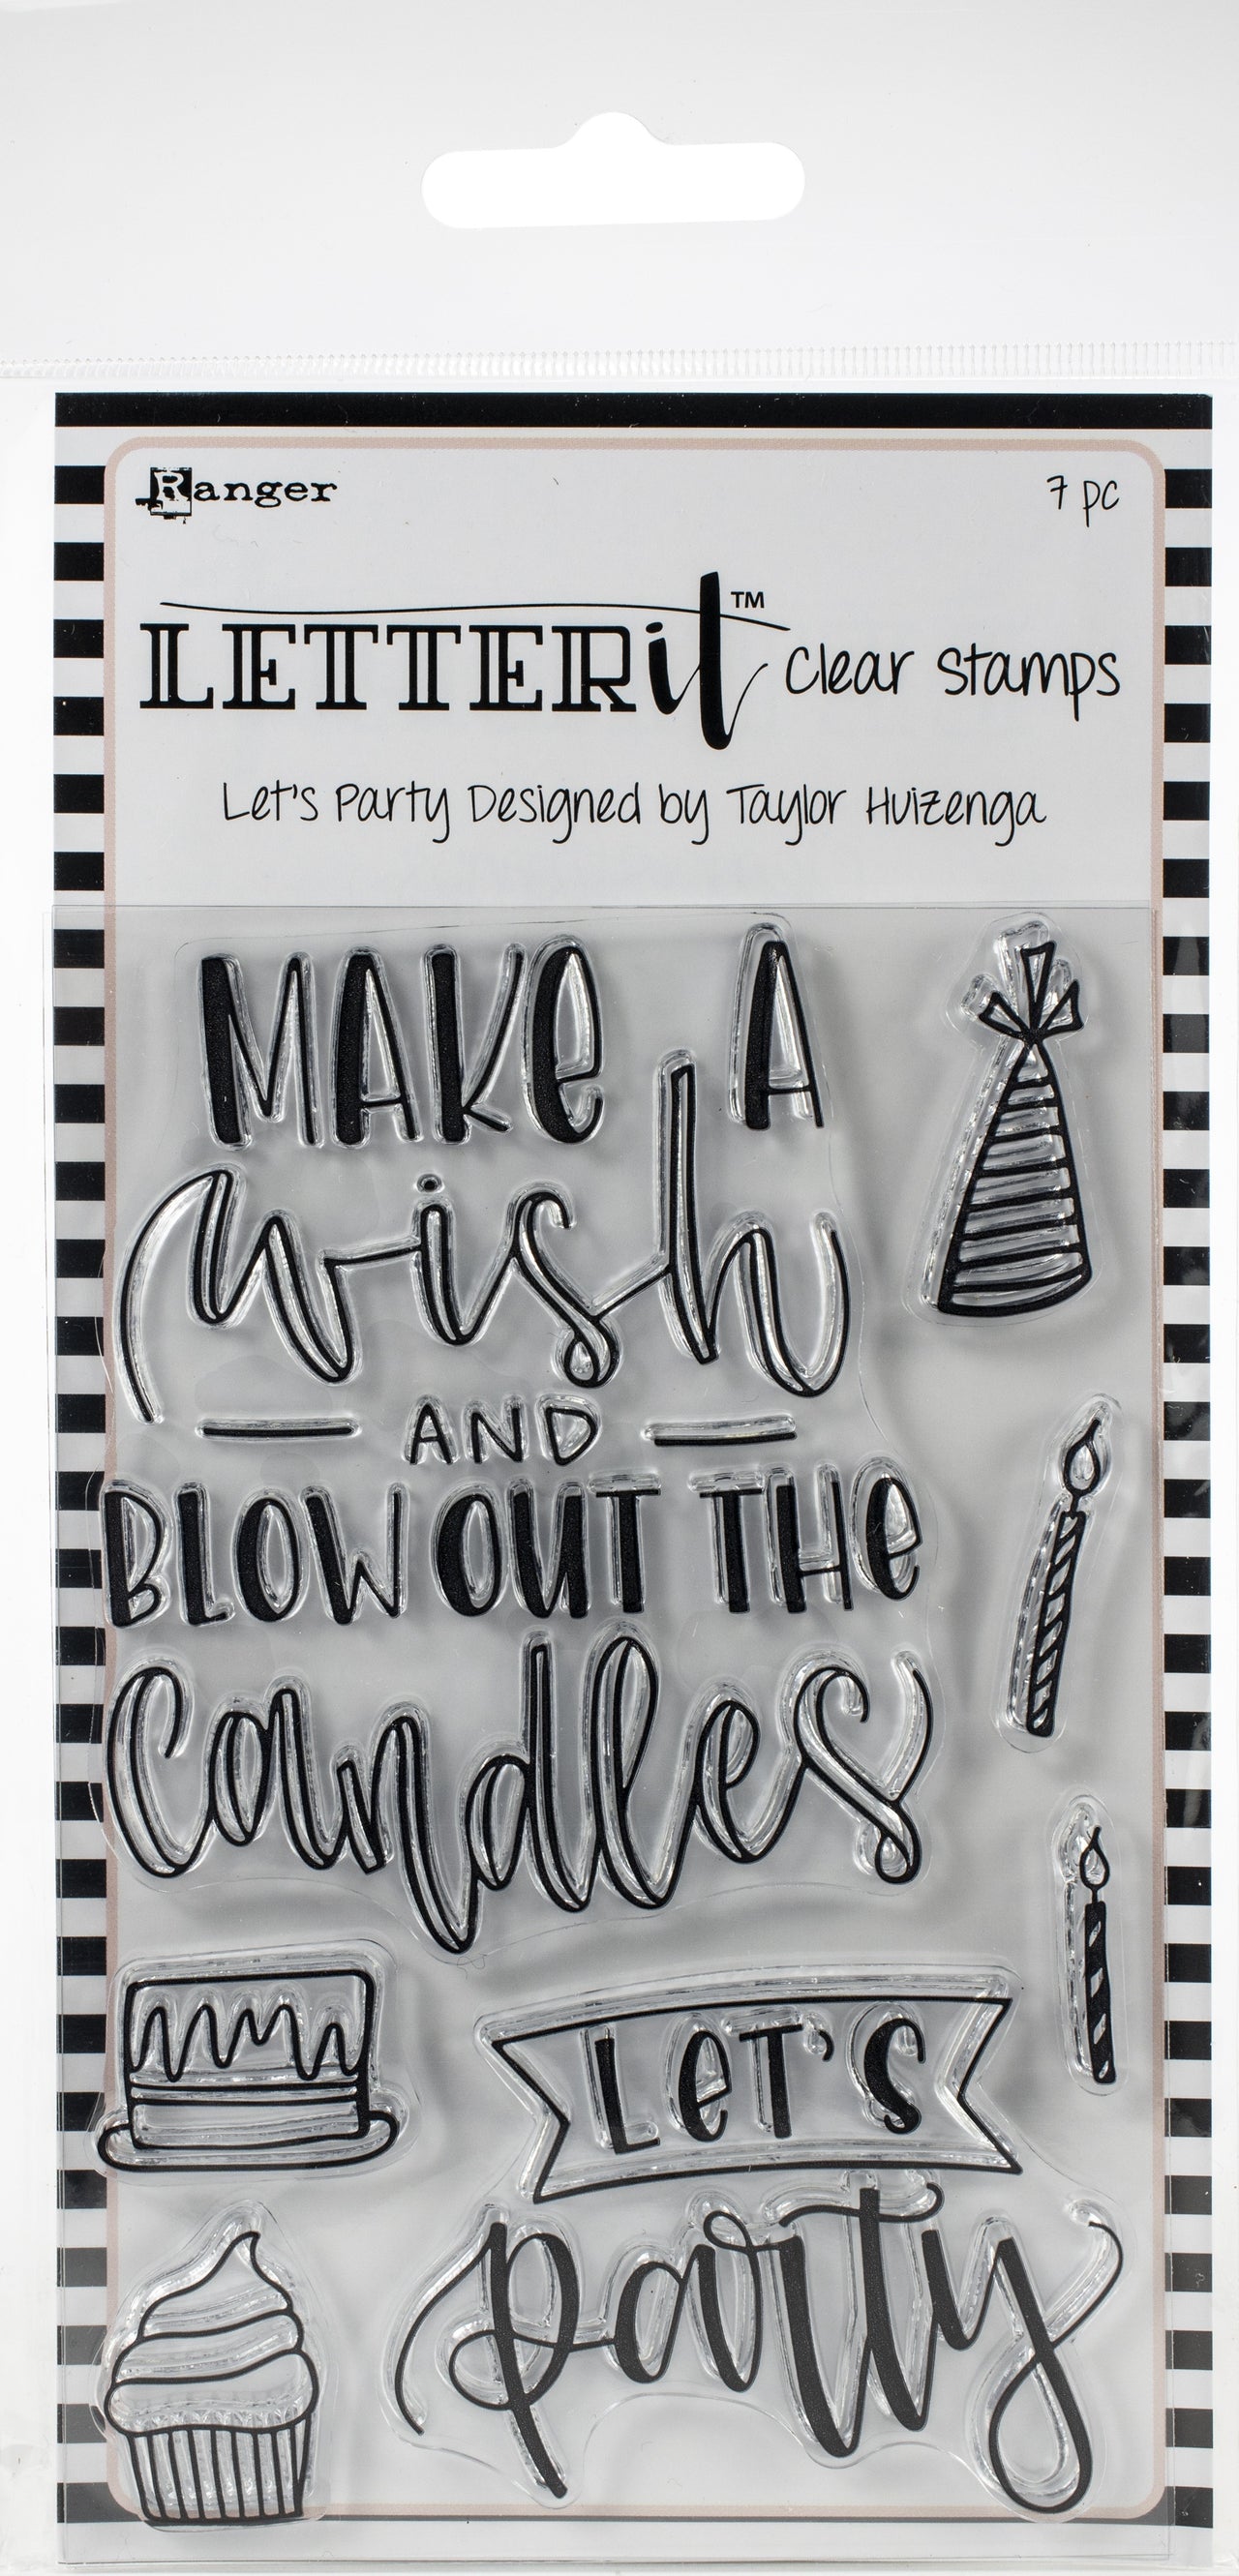 Ranger
7 pc
LETTERit™ Clear Stamps
Let's Party Designed by Taylor Huizenga
MAKe A
wish
AND
BLOW OUT THe
Candles
LeT'S
party